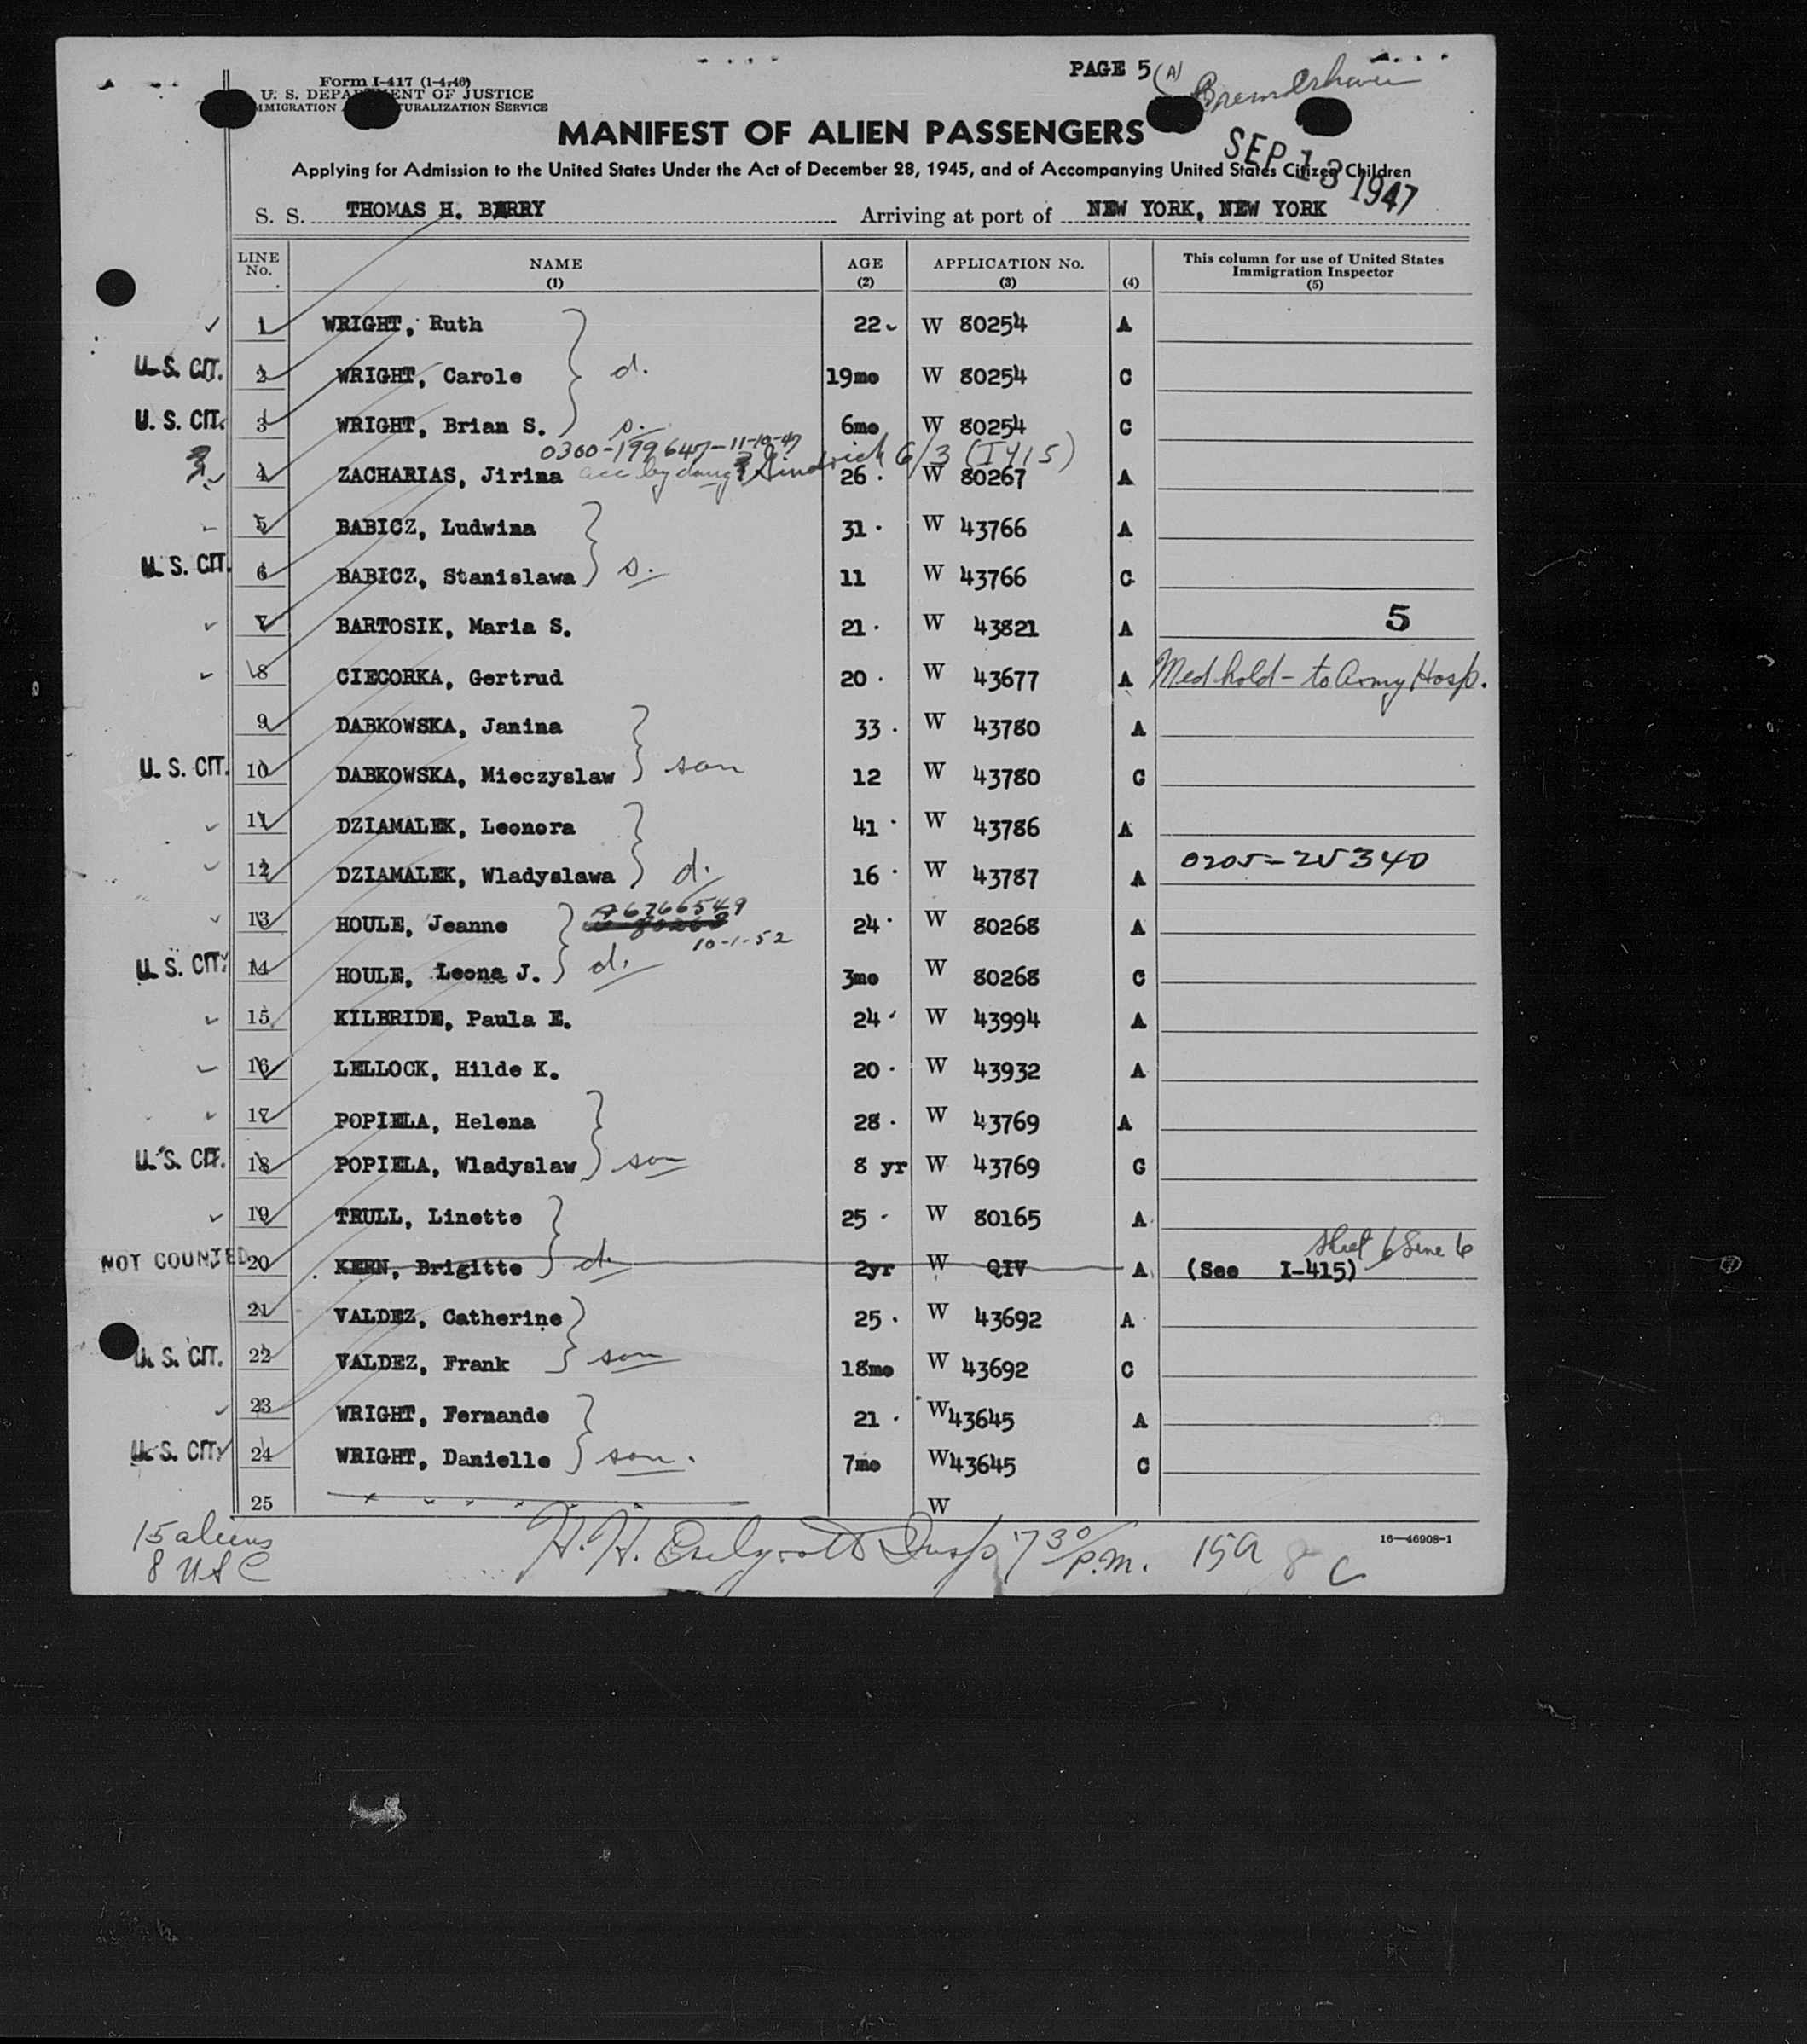 PAGE 5 (A) Bremerhaven
Form I-417 (1-4-46)
U. S. DEPARTMENT OF JUSTICE
IMMIGRATION NATURALIZATION SERVICE
MANIFEST OF ALIEN PASSENGERS
SEP 13 1947
Applying for Admission to the United States Under the Act of December 28, 1945, and of Accompanying United States Citizen Children
S. S. THOMAS H. BARRY Arriving at port of NEW YORK, NEW YORK
LINE No. NAME (1) AGE (2) APPLICATION No. (3) (4) This column for use of United States Immigration Inspector (5)
1 WRIGHT, Ruth 22 W 80254 A
U. S. CIT. 2 WRIGHT, Carole d. 19mo W 80254 C
U. S. CIT. 3 WRIGHT, Brian S. s. 6mo W 80254 C
0300-199647-11-10-47
4 ZACHARIAS, Jirina acc by daug 6/3 (I415) 26 W 80267 A
5 BABICZ, Ludwina 31 W 43766 A
U. S. CIT. 6 BABICZ, Stanislawa s. 11 W 43766 C
7 BARTOSIK, Maria S. 21 W 43821 A 5
8 CIECORKA, Gertrud 20 W 43677 A Med hold - to Army Hosp.
9 DABKOWSKA, Janina 33 W 43780 A
U. S. CIT. 10 DABKOWSKA, Mieczyslaw son 12 W 43780 C
11 DZIAMALEK, Leonora 41 W 43786 A
12 DZIAMALEK, Wladyslawa d. 16 W 43787 A 0205-25340
A6766549
13 HOULE, Jeanne 24 W 80268 A
10-1-52
U. S. CIT. 14 HOULE, Leona J. d. 3mo W 80268 C
15 KILBRIDE, Paula E. 24 W 43994 A
16 LELLOCK, Hilde K. 20 W 43932 A
17 POPIELA, Helena 28 W 43769 A
U. S. CIT. 18 POPIELA, Wladyslaw son 8 yr W 43769 C
19 TRULL, Linette 25 W 80165 A
NOT COUNTED 20 KERN, Brigitte d. 2yr W QIV A (See I-415) Sheet 6 Line 6
21 VALDEZ, Catherine 25 W 43692 A
U. S. CIT. 22 VALDEZ, Frank son 18mo W 43692 C
23 WRIGHT, Fernande 21 W 43645 A
U. S. CIT. 24 WRIGHT, Danielle son. 7mo W 43645 C
25 W
15 aliens
8 USC
H. H. Insp 7 30/p.m. 15A 8 C
16—46908-1